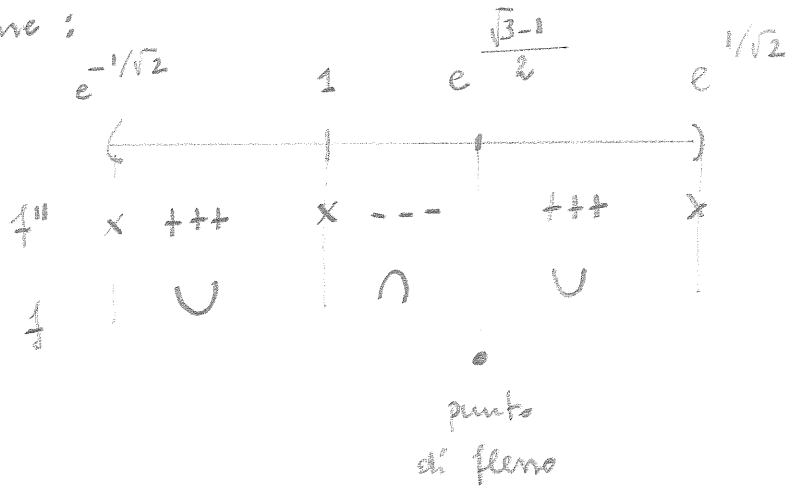 ne :
e^{-1/√2} 1 e^{\frac{√3-1}{2}} e^{1/√2}
f" x +++ x --- +++ x
f ∪ ∩ ∪
punto
di flesso